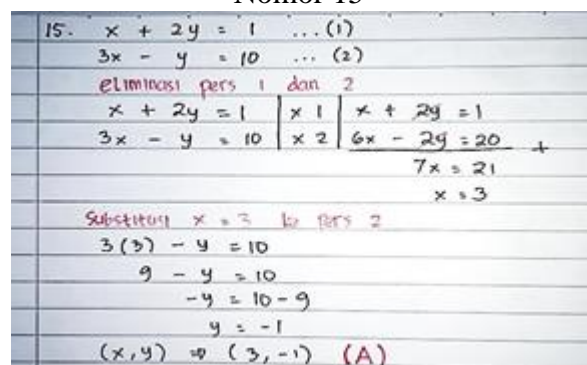 Nomor 15
15. x + 2y = 1 ...(1)
3x - y = 10 ... (2)
eliminasi pers 1 dan 2
x + 2y = 1 | x 1 | x + 2y = 1
3x - y = 10 | x 2 | 6x - 2y = 20 +
7x = 21
x = 3
Substitusi x = 3 ke Pers 2
3(3) - y = 10
9 - y = 10
-y = 10 - 9
y = -1
(x,y) ⇒ (3,-1) (A)